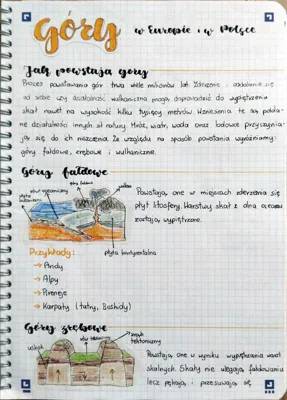 Góry w Europie i w Polsce
Jak powstają góry
Proces powstawania gór trwa wiele milionów lat. Zderzenie i oddalanie się
od siebie czy działalność wulkaniczna mogą doprowadzić do wypiętrzenia
skał nawet na wysokość kilku tysięcy metrów. Wzniesienia te są podda-
ne działalności innych sił natury. Mróz, wiatr, woda oraz lodowce przyczynia-
ją się do ich niszczenia. Ze względu na sposób powstania wyróżniamy:
góry fałdowe, zrębowe i wulkaniczne.
Góry fałdowe
góry fałdowe
rów oceaniczny
wulkan
płyta oceaniczna
Powstają one w miejscach zderzenia się
płyt litosfery. Warstwy skał z dna oceanu
zostają wypiętrzone.
płyta kontynentalna
Przykłady:
→ Andy
→ Alpy
→ Pireneje
→ Karpaty (Tatry, Beskidy)
Góry zrębowe
rów tektoniczny
zrąb tektoniczny
uskok
Powstają one w wyniku wypiętrzania warstw
skalnych. Skały nie ulegają fałdowaniu
lecz pękają i przesuwają się